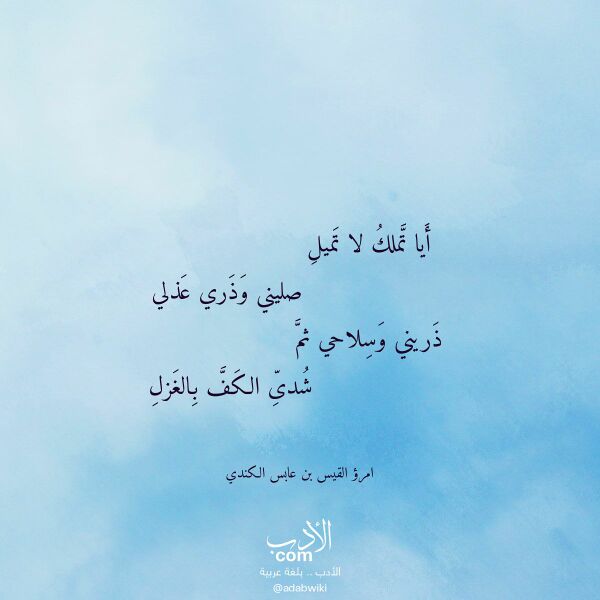 أَيا تَّملكُ لا تَميلِ
صليني وَذَري عَذلي
ذَريني وَسِلاحي ثمَّ
شُديِّ الكَفَّ بِالغَزلِ
امرؤ القيس بن عابس الكندي
الأدب
com
الأدب .. بلغة عربية
@adabwiki